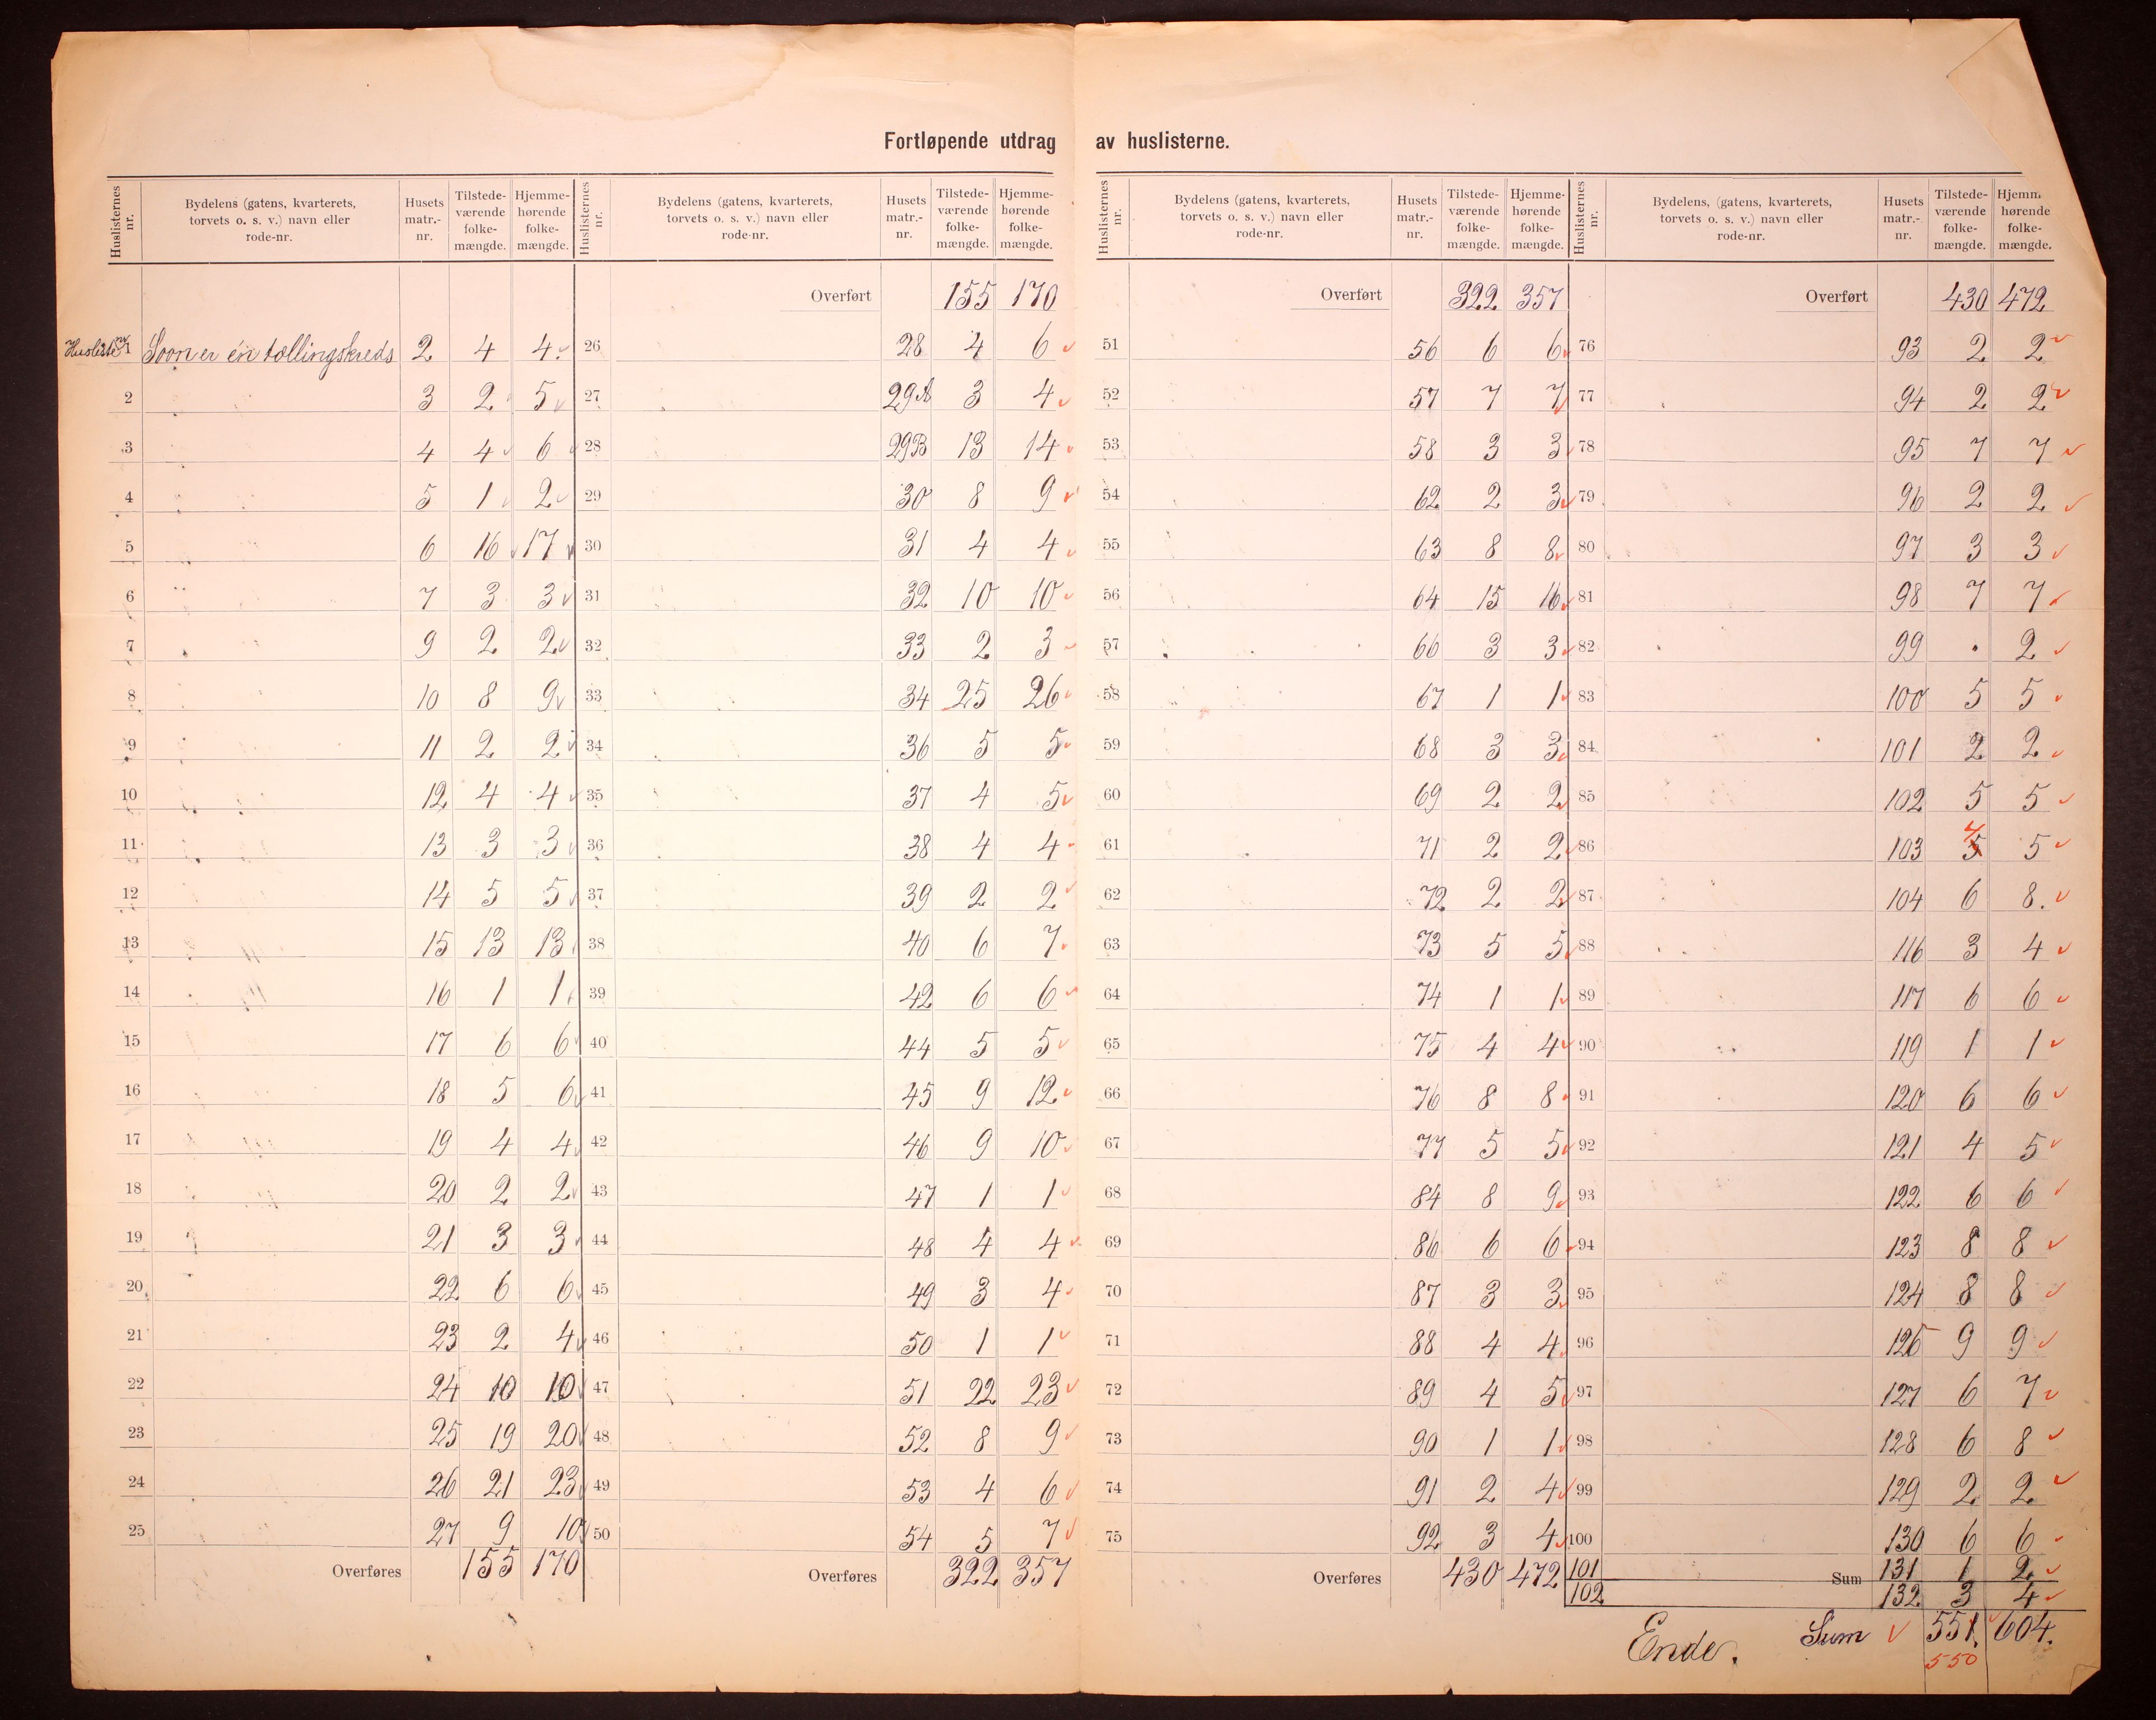 Fortløpende utdrag av huslisternes.
Huslisternes nr. | Bydelens (gatens, kvarterets, torvets o. s. v.) navn eller rode-nr. | Husets matr.-nr. | Tilstedeværende folkemængde. | Hjemmehørende folkemængde.
Husliste nr 1 Soon er én tællingskreds 2 4 4
2 3 2 5
3 4 4 6
4 5 1 2
5 6 16 17
6 7 3 3
7 9 2 2
8 10 8 9
9 11 2 2
10 12 4 4
11 13 3 3
12 14 5 5
13 15 13 13
14 16 1 1
15 17 6 6
16 18 5 6
17 19 4 4
18 20 2 2
19 21 3 3
20 22 6 6
21 23 2 4
22 24 10 10
23 25 19 20
24 26 21 23
25 27 9 10
Overføres 155 170
Huslisternes nr. | Bydelens (gatens, kvarterets, torvets o. s. v.) navn eller rode-nr. | Husets matr.-nr. | Tilstede-værende folke-mængde. | Hjemme-hørende folke-mængde.
Overført 155 170
26 28 4 6
27 29A 3 4
28 29B 13 14
29 30 8 9
30 31 4 4
31 32 10 10
32 33 2 3
33 34 25 26
34 36 5 5
35 37 4 5
36 38 4 4
37 39 2 2
38 40 6 7
39 42 6 6
40 44 5 5
41 45 9 12
42 46 9 10
43 47 1 1
44 48 4 4
45 49 3 4
46 50 1 1
47 51 22 23
48 52 8 9
49 53 4 6
50 54 5 7
Overføres 322 357
Huslisternes nr. | Bydelens (gatens, kvarterets, torvets o. s. v.) navn eller rode-nr. | Husets matr.-nr. | Tilstede-værende folke-mængde. | Hjemme-hørende folke-mængde.
Overført 322 357
51 56 6 6
52 57 7 7
53 58 3 3
54 62 2 3
55 63 8 8
56 64 15 16
57 66 3 3
58 67 1 1
59 68 3 3
60 69 2 2
61 71 2 2
62 72 2 2
63 73 5 5
64 74 1 1
65 75 4 4
66 76 8 8
67 77 5 5
68 84 8 9
69 86 6 6
70 87 3 3
71 88 4 4
72 89 4 5
73 90 1 1
74 91 2 4
75 92 3 4
Overføres 430 472
Huslisternes nr. | Bydelens (gatens, kvarterets, torvets o. s. v.) navn eller rode-nr. | Husets matr.-nr. | Tilstede-værende folke-mængde. | Hjemm hørende folke-mængde.
Overført 430 472
76 93 2 2
77 94 2 2
78 95 7 7
79 96 2 2
80 97 3 3
81 98 7 7
82 99 . 2
83 100 5 5
84 101 2 2
85 102 5 5
86 103 5 4 5
87 104 6 8.
88 116 3 4
89 117 6 6
90 119 1 1
91 120 6 6
92 121 4 5
93 122 6 6
94 123 8 8
95 124 8 8
96 126 9 9
97 127 6 7
98 128 6 8
99 129 2 2
100 130 6 6
101 Sum 131 1 2
102 132 3 4
Ende. Sum 551. 604.
550